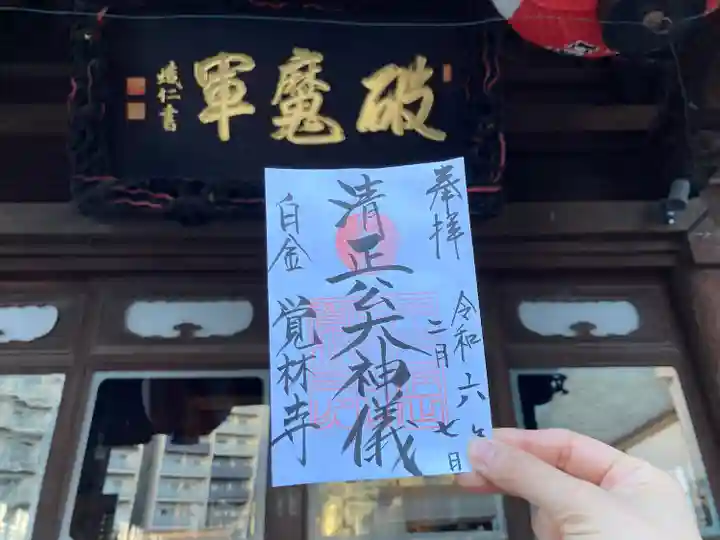 破魔軍
奉拝
令和六年
二月七日
清正公大神儀
白金
覚林寺